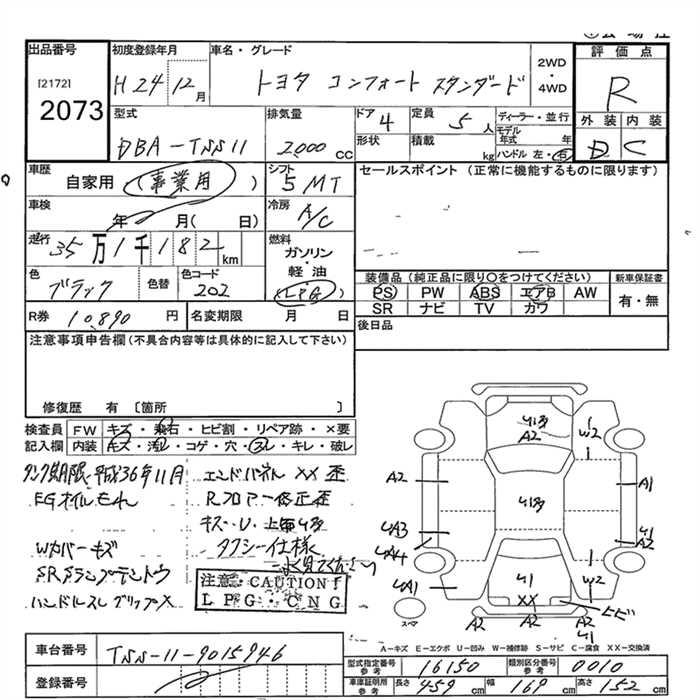 出品番号
[2172]
2073
初度登録年月
H24 12月
車名・グレード
トヨタ コンフォート スタンダード
2WD
・
4WD
評価点
R
外装 内装
D C
型式
DBA-TSS11
排気量
2000 CC
ドア
4
形状
定員
5人
積載
kg
ディーラー・並行
モデル年式 年
ハンドル 左・右
車歴
自家用 (事業用)
シフト
5MT
セールスポイント (正常に機能するものに限ります)
車検
年 月( 日)
冷房
A/C
走行
35万1千182km
燃料
ガソリン
・
軽油
(LPG)
色
ブラック
色替
色コード
202
装備品 (純正品に限り○をつけてください)
PS PW ABS エアB AW
SR ナビ TV カワ
新車保証書
有・無
R券 10,890円
名変期限 月 日
後日品
注意事項申告欄(不具合内容等は具体的に記入して下さい)
修復歴 有〔箇所 〕
検査員記入欄
FW キズ・飛石・ヒビ割・リペア跡・×要
内装 キズ・汚れ・コゲ・穴・スレ・キレ・破レ
タンク期限 平成36年11月
EGオイルもれ
Wカバーキズ
SRクランプテントウ
ハンドルスレ グリップX
エンドパネル XX 歪
Rフロアー修正歪
キズ・U・上
タクシー仕様
よく見てください
注意・CAUTION!
LPG・CNG
A2
W2
A2
A1
UA3
UA4
U1
A2
UA1
W2
U1
XX
ヒビ
A2
A2
A2
スペア
A-キズ E-エクボ U-凹み W-補修跡 S-サビ C-腐食 XX-交換済
車台番号
TSS-11-9015946
登録番号
型式指定番号 参考 16150
類別区分番号 参考 0010
車庫証明用 参考 長さ 459cm 幅 169cm 高さ 152cm